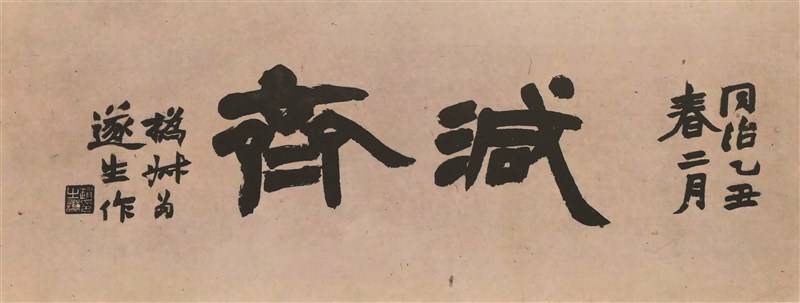 同治乙丑
春二月
減齊
撝叔為
遂生作